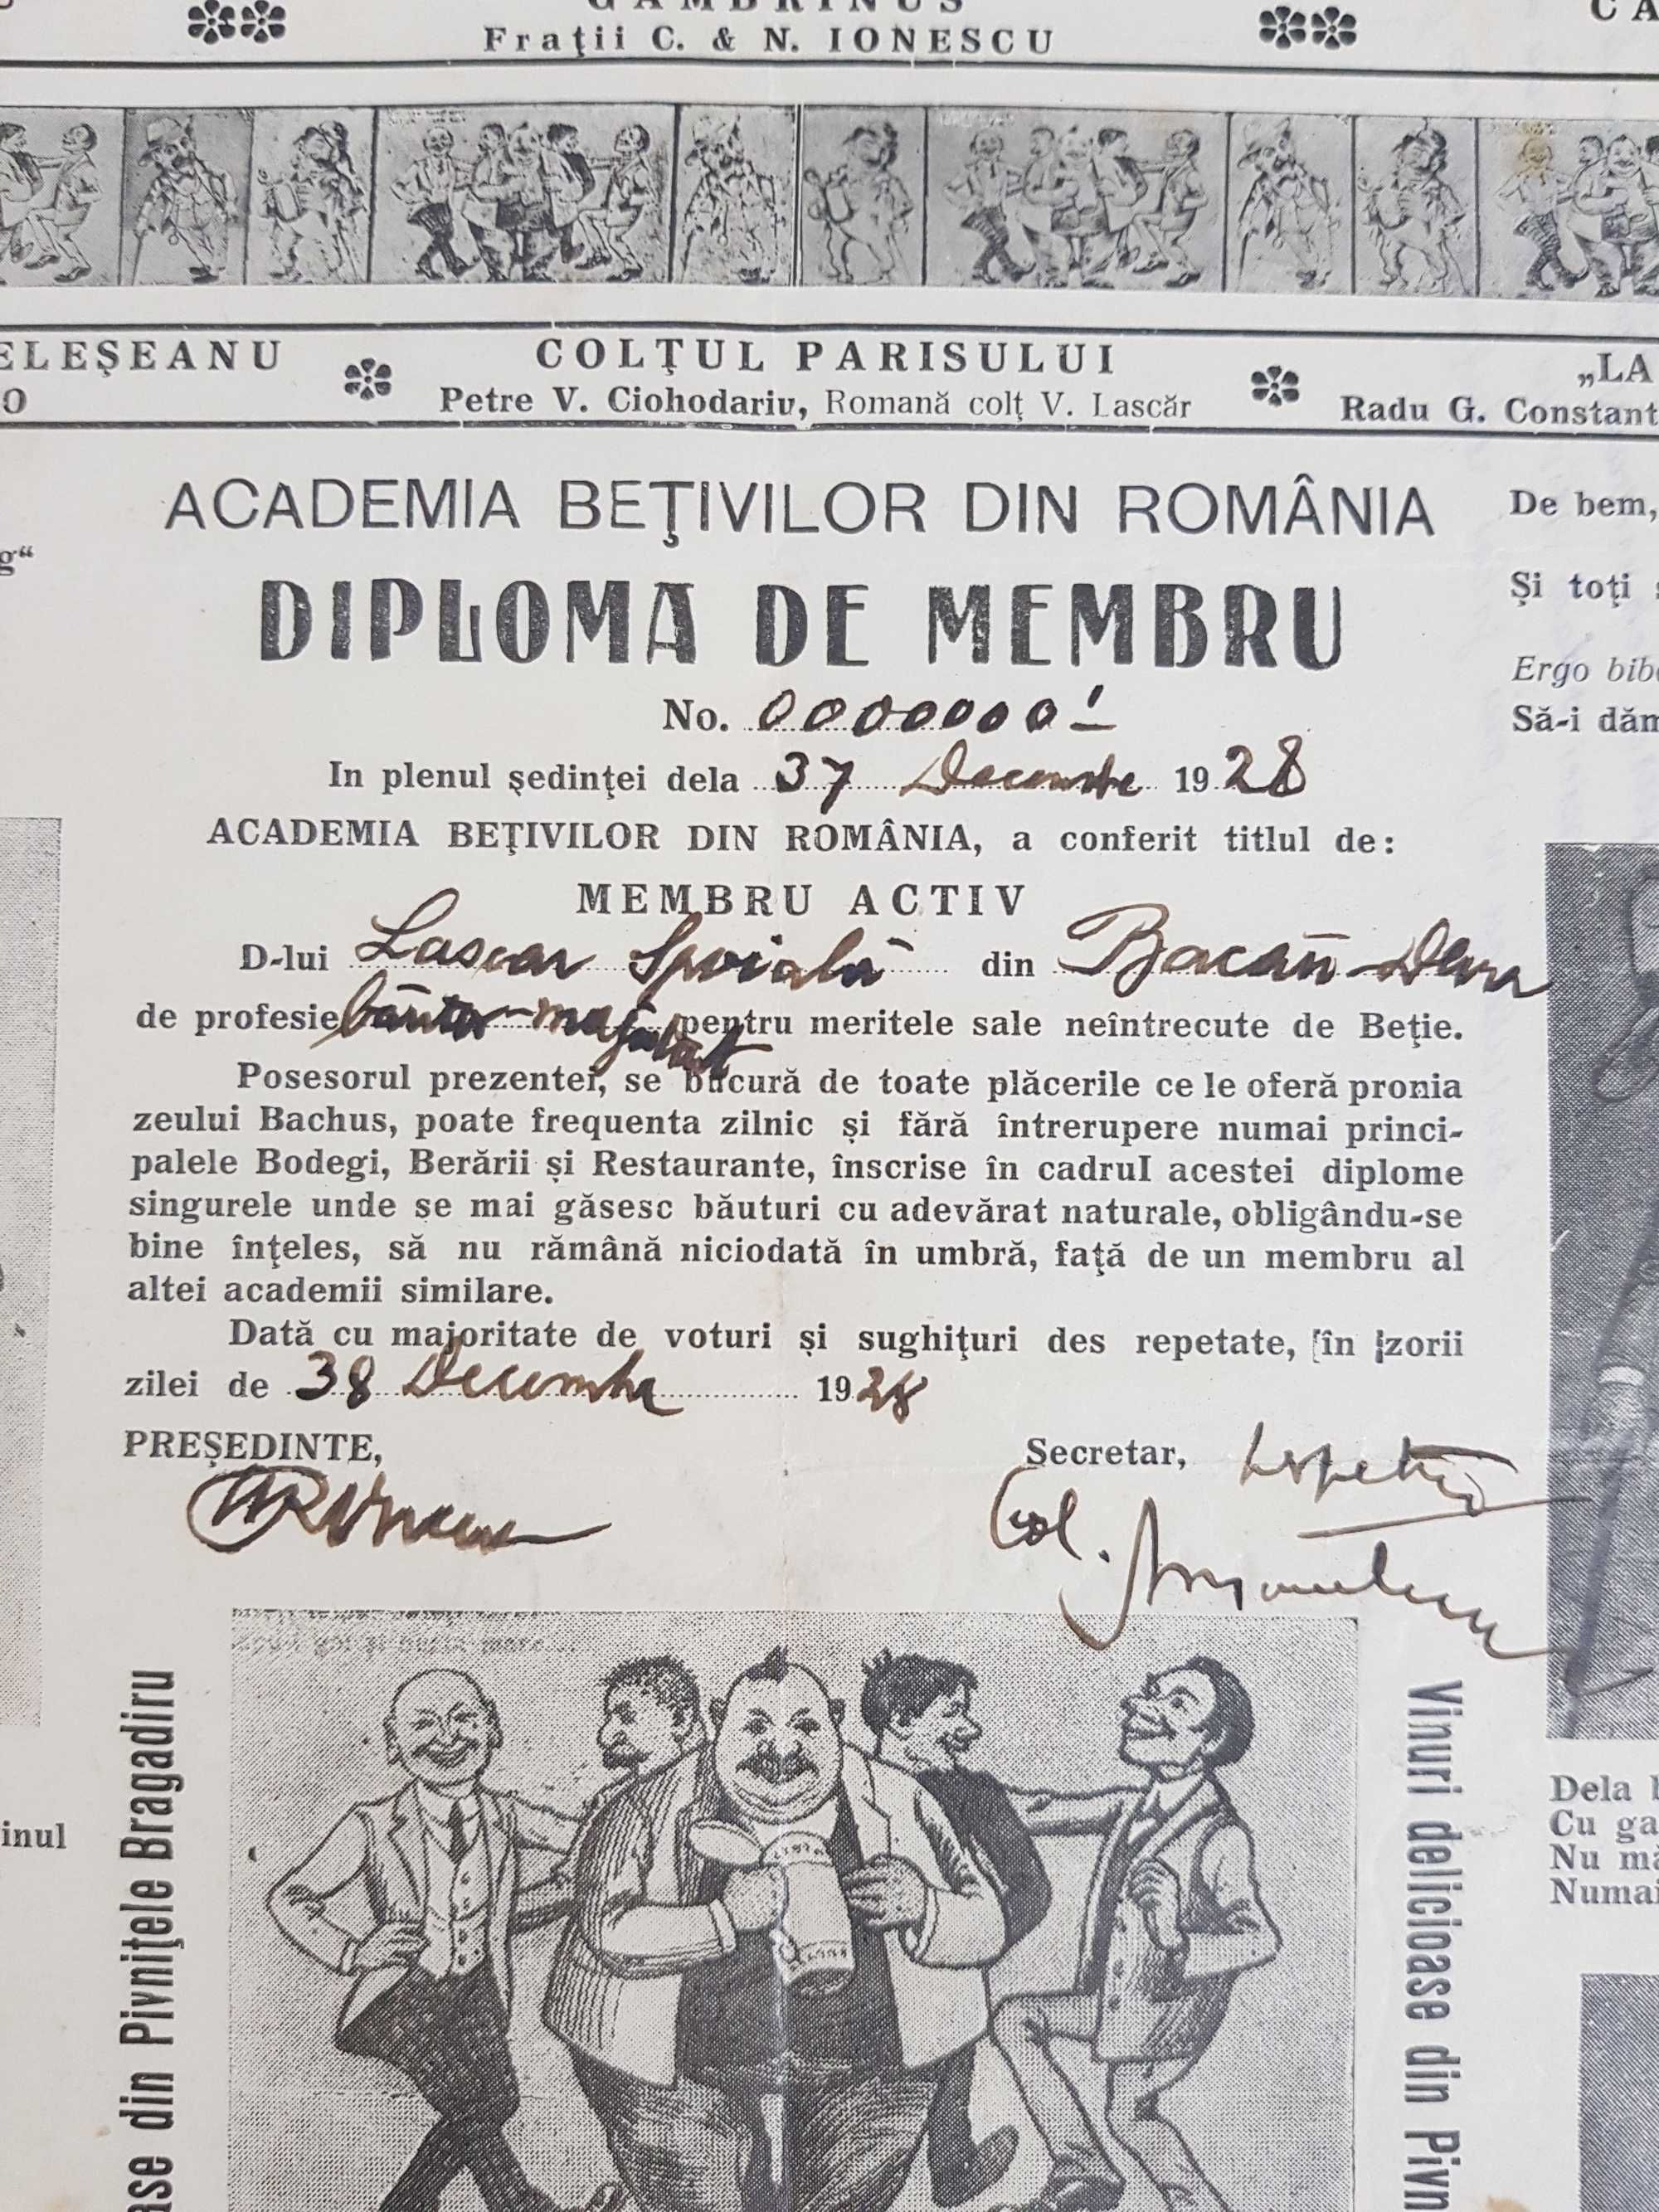 GAMBRINUS
Frații C. & N. IONESCU
CA
ELEȘEANU
COLȚUL PARISULUI
Petre V. Ciohodariu, Romană colț V. Lascăr
„LA
Radu G. Constant
ACADEMIA BEȚIVILOR DIN ROMÂNIA
DIPLOMA DE MEMBRU
No. 0000000 1
In plenul ședinței dela 37 Decembrie 1928
ACADEMIA BEȚIVILOR DIN ROMÂNIA, a conferit titlul de:
MEMBRU ACTIV
D-lui Lascar Spoială din Bacău-Deva
de profesie pentru meritele sale neîntrecute de Beție.
Posesorul prezentei, se bucură de toate plăcerile ce le oferă pronia
zeului Bachus, poate frequenta zilnic și fără întrerupere numai princi-
palele Bodegi, Berării și Restaurante, înscrise în cadrul acestei diplome
singurele unde se mai găsesc băuturi cu adevărat naturale, obligându-se
bine înțeles, să nu rămână niciodată în umbră, față de un membru al
altei academii similare.
Dată cu majoritate de voturi și sughițuri des repetate, în zorii
zilei de 38 Decembrie 1928
PREȘEDINTE,
Secretar,
Col.
De bem,
Și toți
Ergo bib
Să-i dăm
g“
inul
ase din Pivnițele Bragadiru
Vinuri delicioase din Pivn
Dela b
Cu ga
Nu mă
Numai